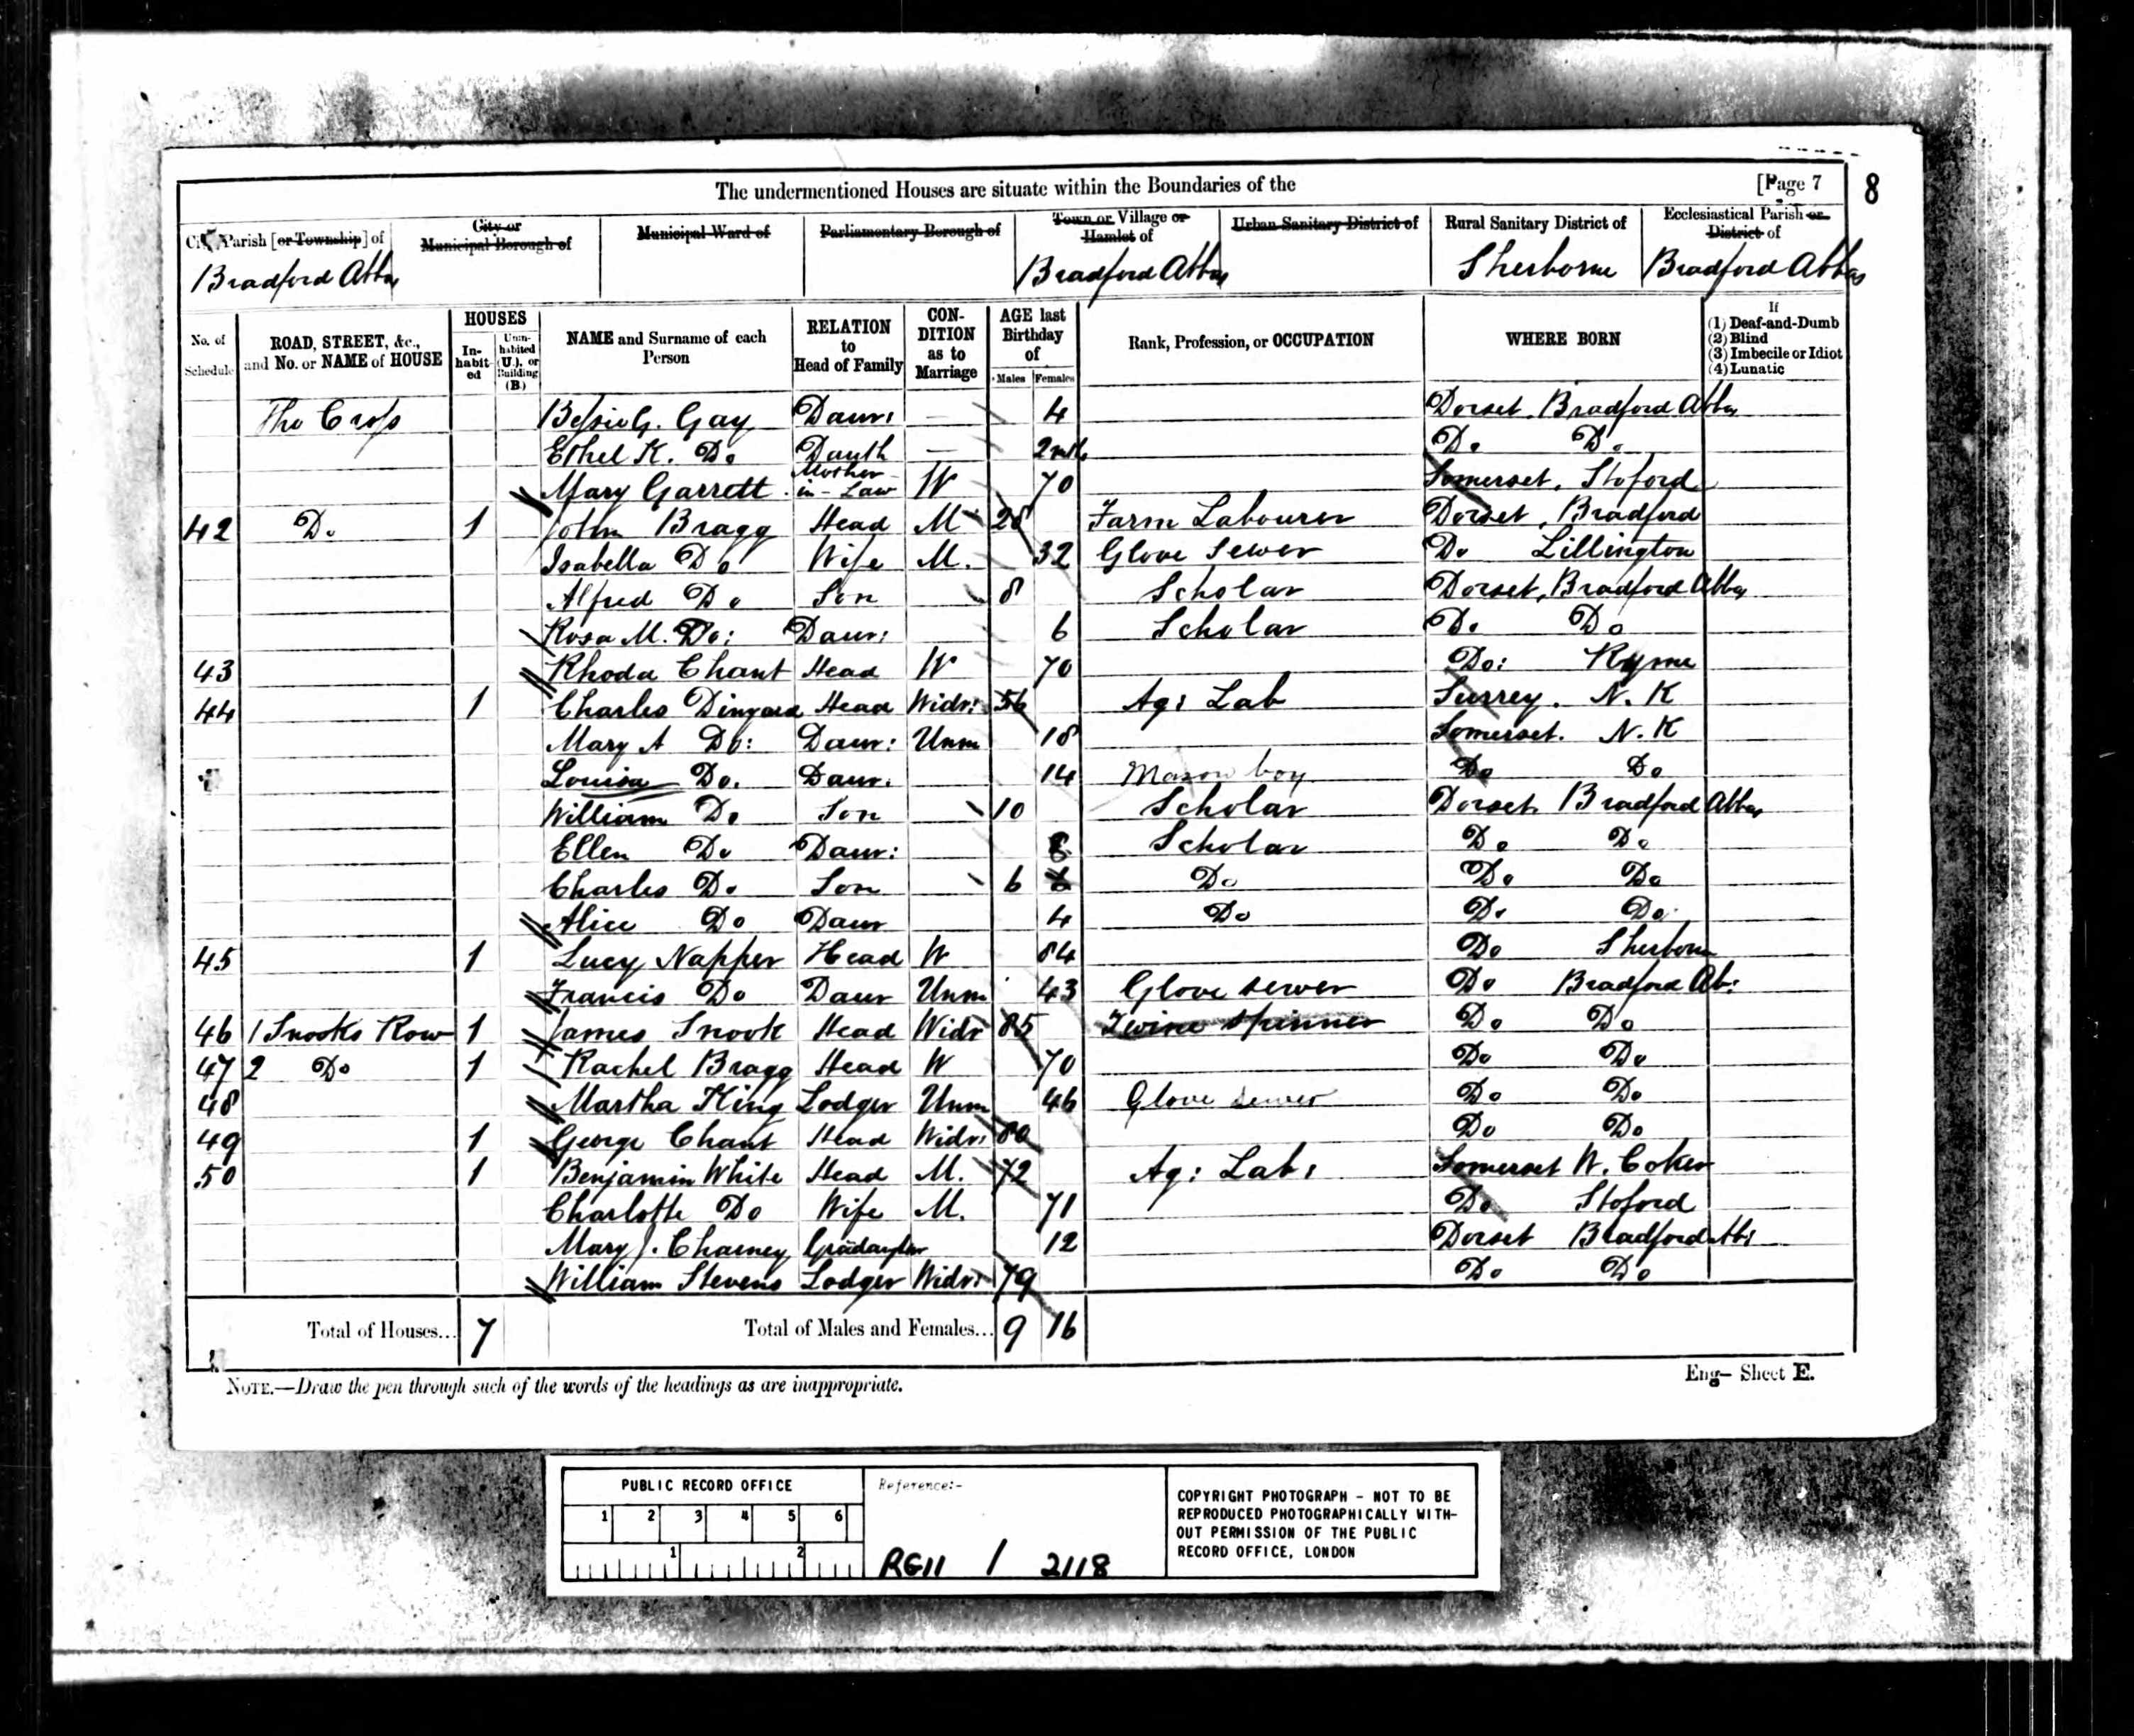 The undermentioned Houses are situate within the Boundaries of the [Page 7 8
Parish [or Township] of City or Municipal Borough of Municipal Ward of Parliamentary Borough of Town or Village or Hamlet of Urban Sanitary District of Rural Sanitary District of Ecclesiastical Parish or District of
Bradford Abbas Bradford Abbas Sherborne Bradford Abbas
No. of Schedule ROAD, STREET, &c., and No. or NAME of HOUSE HOUSES Inhabited Uninhabited (U.), or Building (B.) NAME and Surname of each Person RELATION to Head of Family CONDITION as to Marriage AGE last Birthday of Males Females Rank, Profession, or OCCUPATION WHERE BORN If (1) Deaf-and-Dumb (2) Blind (3) Imbecile or Idiot (4) Lunatic
The Cross Bessie G. Gay Daur: — 4 Dorset. Bradford Abbas
Ethel K. Do Dauth — 2 mths Do Do
Mary Garrett Mother in-Law W 70 Somerset. Stoford
42 Do 1 John Bragg Head M 28 Farm Labourer Dorset, Bradford
Isabella Do Wife M. 32 Glove Sewer Do Lillington
Alfred Do Son 8 Scholar Dorset, Bradford Abbas
Rosa M. Do: Daur: 6 Scholar Do Do
43 Rhoda Chant Head W 70 Do: Ryme
44 1 Charles Dingard Head Widr: 56 Ag: Lab Surrey. N. K
Mary A Do: Daur: Unm 18 Somerset. N. K
Louisa Do. Daur. 14 Mason boy Do Do
William Do Son 10 Scholar Dorset Bradford Abbas
Ellen Do Daur: 8 Scholar Do Do
Charles Do Son 6 6 Do Do Do
Alice Do Daur 4 Do Do Do
45 1 Lucy Napper Head W 84 Do Sherborne
Francis Do Daur Unm 43 Glove sewer Do Bradford Ab:
46 1 Snooks Row 1 James Snook Head Widr 85 Twine Spinner Do Do
47 2 Do 1 Rachel Bragg Head W 70 Do Do
48 Martha King Lodger Unm 46 Glove sewer Do Do
49 1 George Chant Head Widr: 80 Do Do
50 1 Benjamin White Head M. 72 Ag: Lab: Somerset W. Coker
Charlotte Do Wife M. 71 Do Stoford
Mary J. Charney Gradaughter 12 Dorset Bradford Abb:
William Stevens Lodger Widr: 79 Do Do
Total of Houses... 7 Total of Males and Females... 9 16
NOTE.—Draw the pen through such of the words of the headings as are inappropriate. Eng— Sheet E.
PUBLIC RECORD OFFICE
1 2 3 4 5 6
1 2
Reference:-
RG11 / 2118
COPYRIGHT PHOTOGRAPH - NOT TO BE
REPRODUCED PHOTOGRAPHICALLY WITH-
OUT PERMISSION OF THE PUBLIC
RECORD OFFICE, LONDON